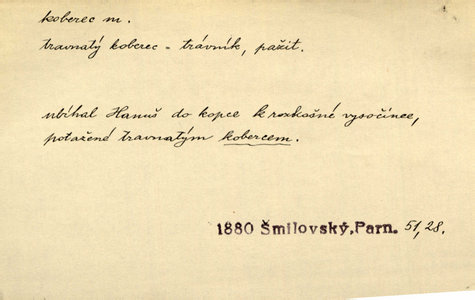 koberec m.
travnatý koberec - trávník, pažit.
ubíhal Hanuš do kopce k rozkošné vysočince,
potažené travnatým kobercem.
1880 Šmilovský, Parn. 51,28.